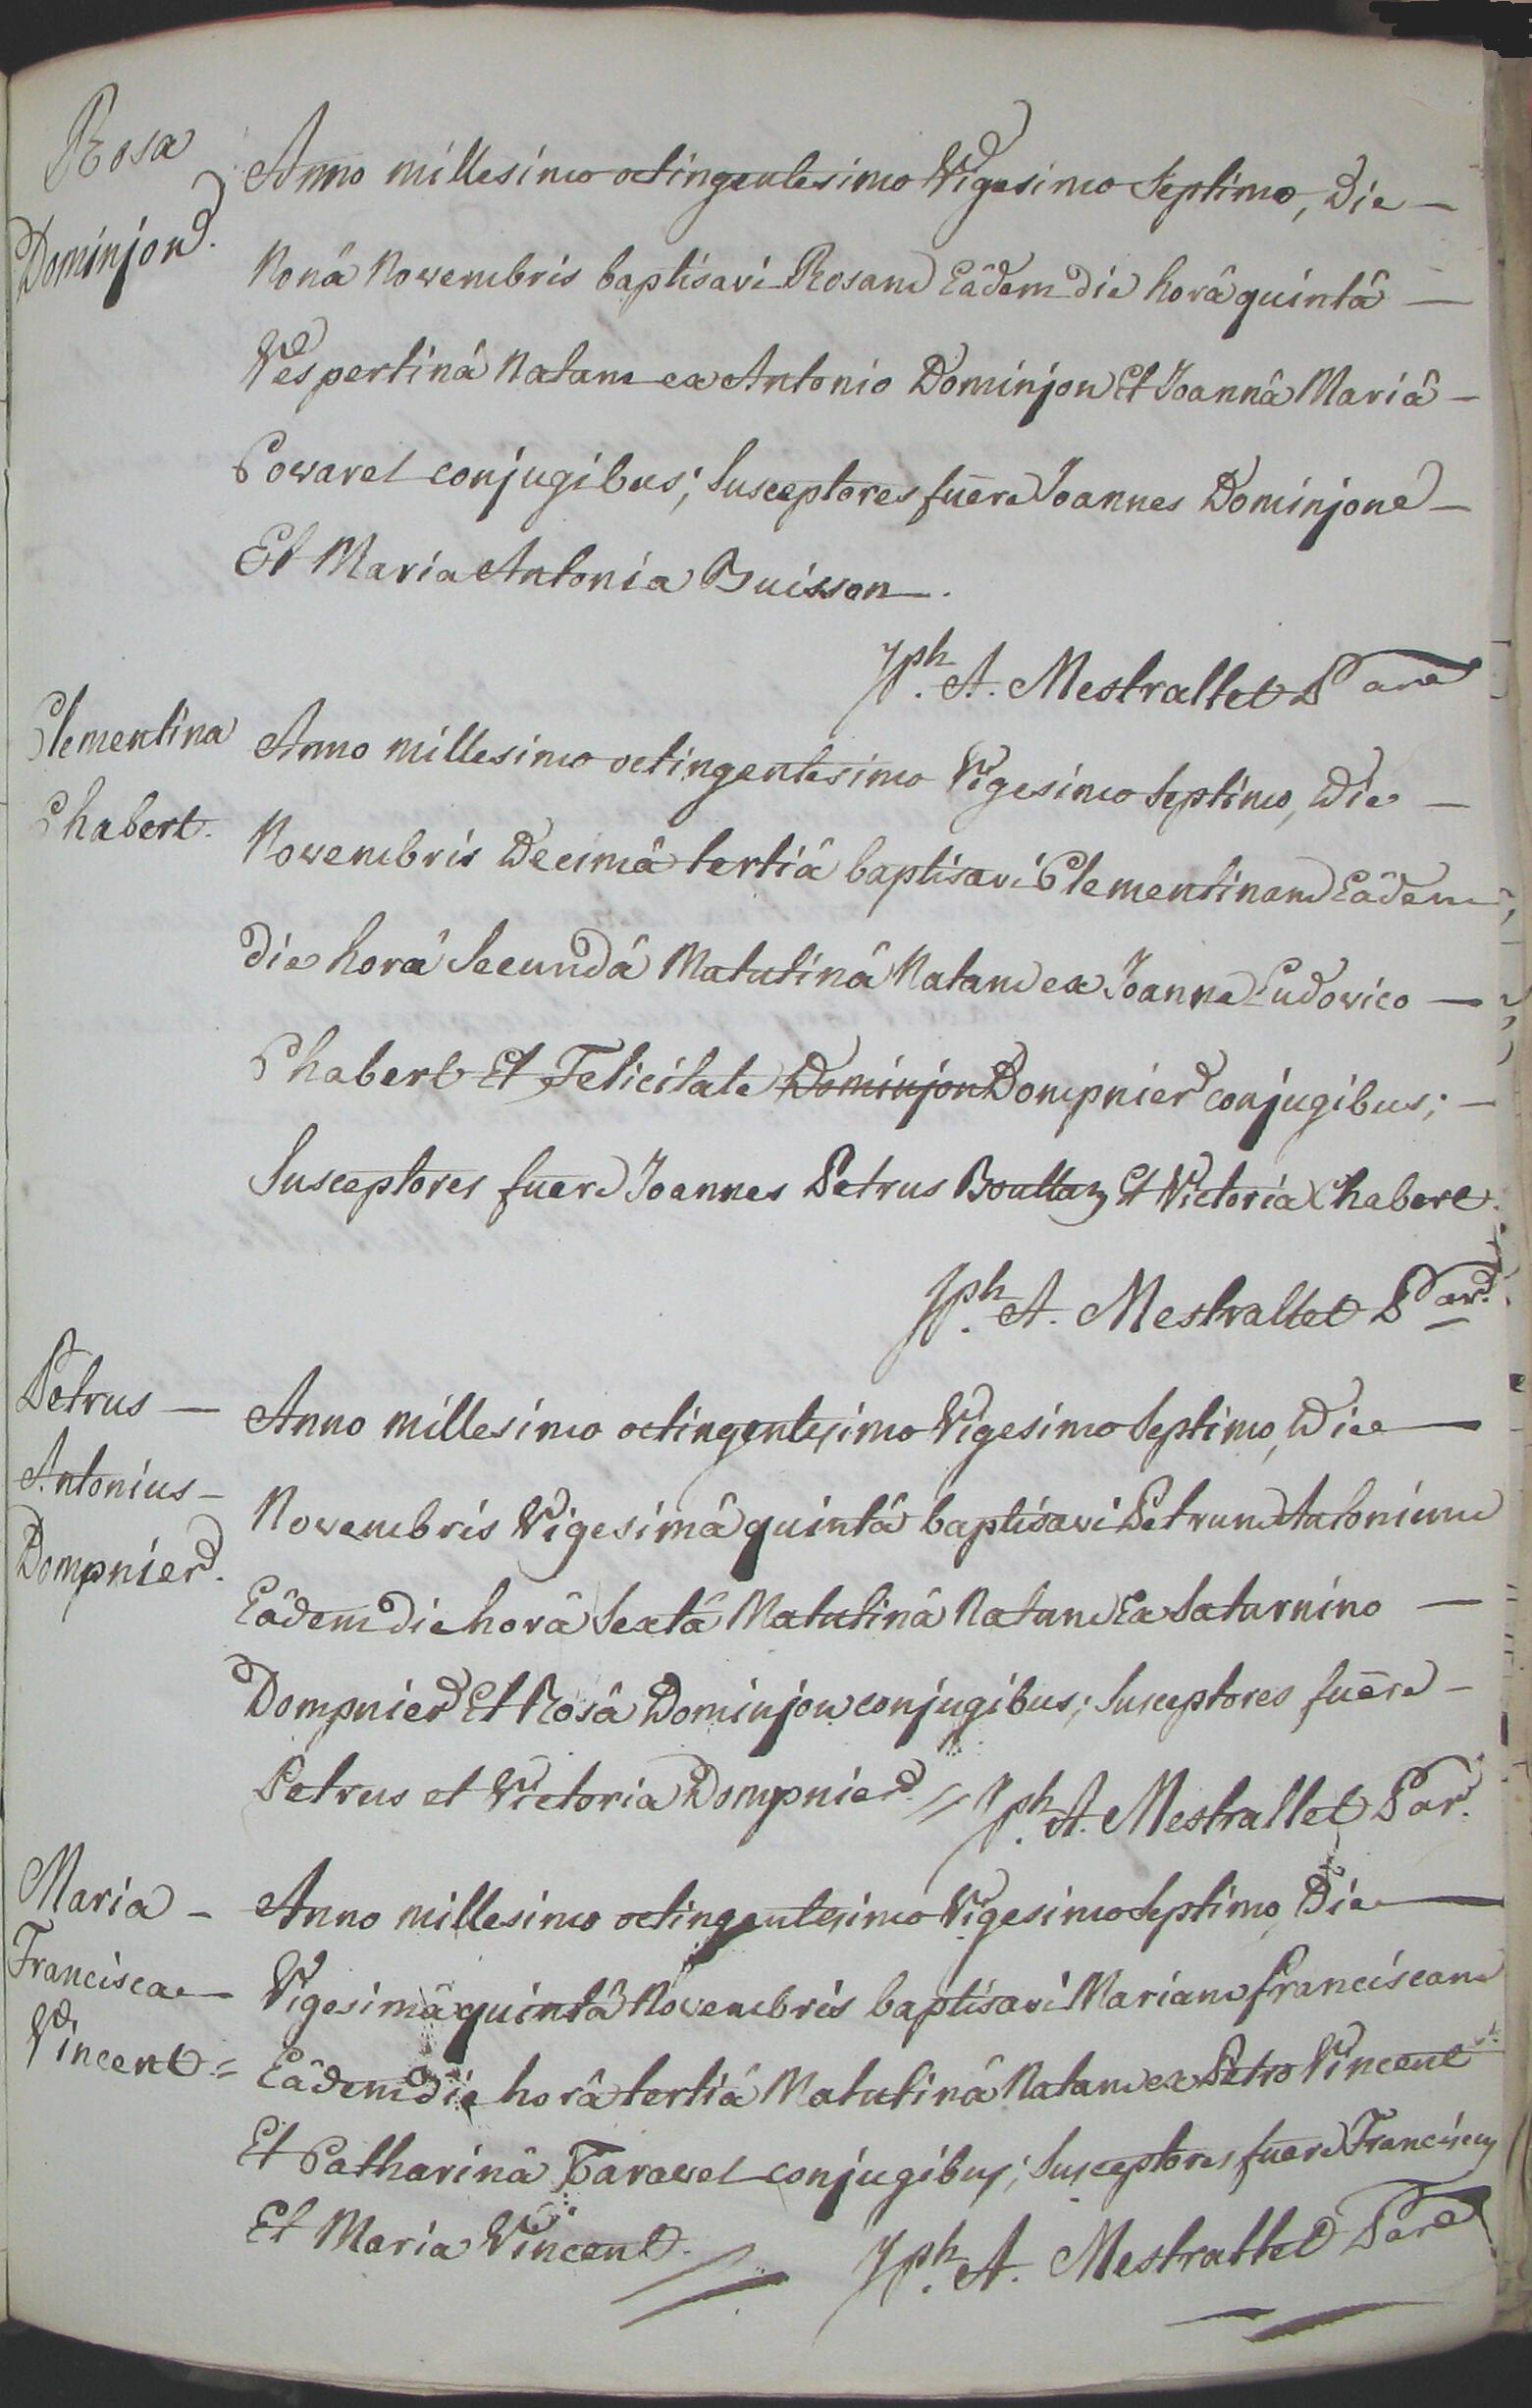 Rosa
Dominjon.
Anno millesimo octingentesimo Vigesimo Septimo, Die —
Nonâ Novembris baptisavi Rosam Eâdem die horâ quintâ —
Vespertinâ Natam ex Antonio Dominjon Et Joannâ Mariâ —
Covarel conjugibus; Susceptores fuêre Joannes Dominjone —
Et Maria Antonia Buisson —.
Jph. A. Mestrallet Par
Clementina
Chabert.
Anno millesimo octingentesimo Vigesimo Septimo, Die —
Novembris Decimâ tertiâ baptisavi Clementinam Eâdem
die horâ Secundâ Matutinâ Natam ex Joanne Ludovico —
Chabert Et Felicitate Dominjon Dompnier conjugibus; —
Susceptores fuere Joannes Petrus Boullaz Et Victoria Chabert.
Jph. A. Mestrallet Par.
Petrus —
Antonius —
Dompnier.
Anno millesimo octingentesimo Vigesimo Septimo, Die —
Novembris Vigesimâ quintâ baptisavi Petrum Antonium
Eâdem die horâ Sextâ Matutinâ Natum Ex Saturnino —
Dompnier Et Rosâ Dominjon conjugibus; Susceptores fuêre —
Petrus et Victoria Dompnier. // Jph. A. Mestrallet Par.
Maria —
Francisca —
Vincent =
Anno millesimo octingentesimo Vigesimo Septimo, Die —
Vigesimâ quintâ Novembris baptisavi Mariam franciscam
Eâdem die horâ tertiâ Matutinâ Natam ex Petro Vincent
Et Catharinâ Taravel conjugibus; Susceptores fuere Franciscus
Et Maria Vincent. // Jph. A. Mestrallet Par